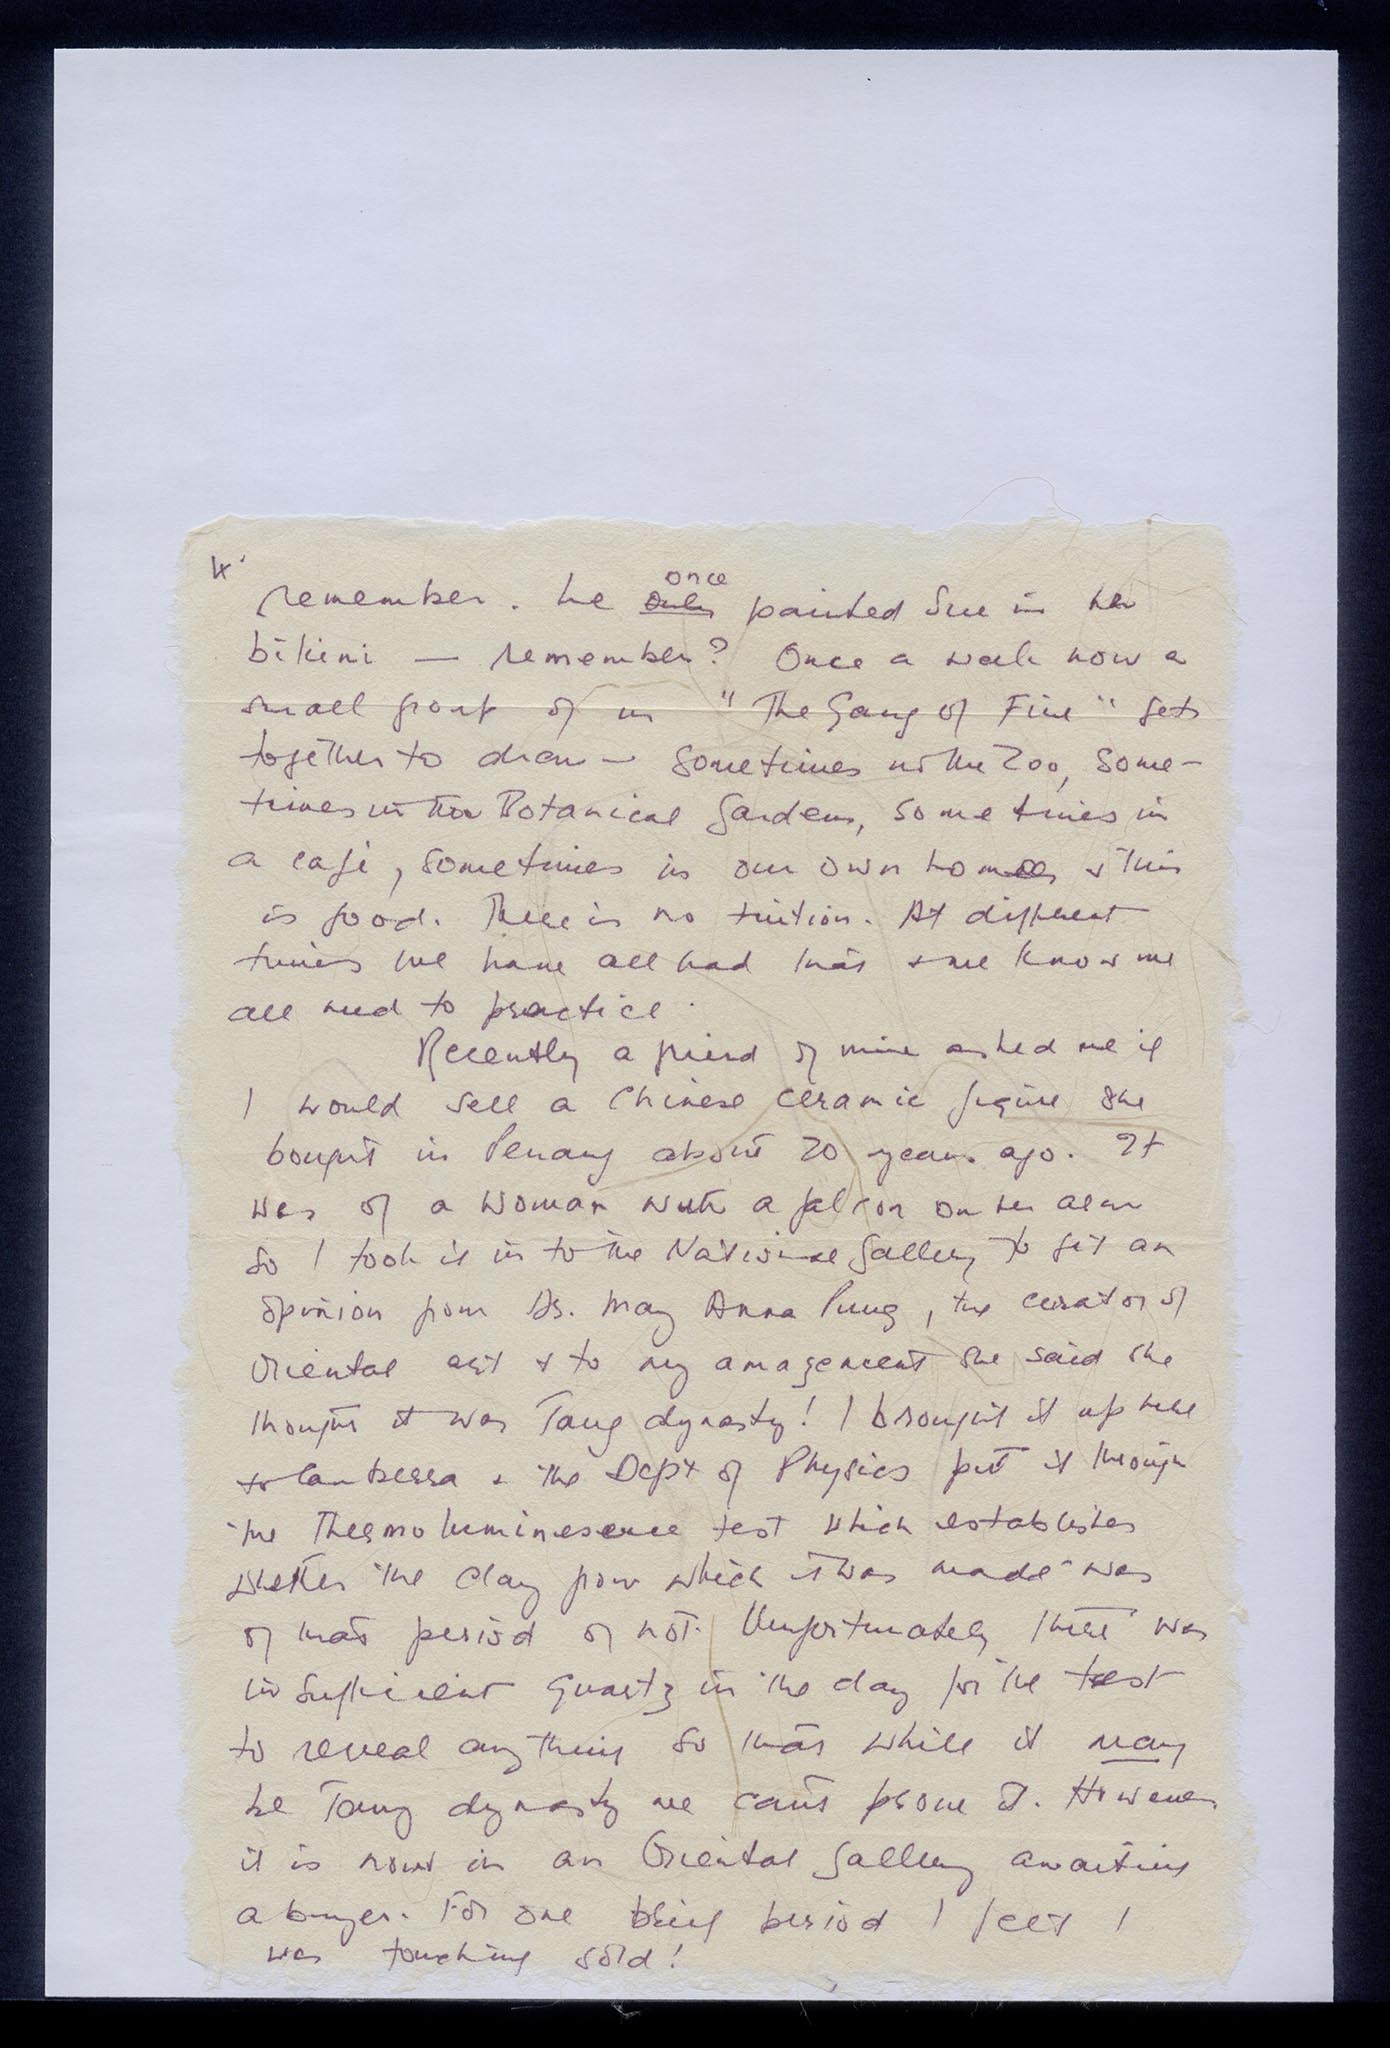 4.
remember. He once painted Sue in her
bikini — remember? Once a week now a
small group of us "The Gang of Five" gets
together to draw — sometimes in the Zoo, some-
times in the Botanical Gardens, sometimes in
a café, sometimes in our own homes & this
is good. There is no tuition. At different
times we have all had that & we know we
all need to practice.
Recently a friend of mine asked me if
I would sell a Chinese ceramic figure she
bought in Penang about 20 years ago. It
was of a woman with a falcon on her arm
so I took it in to the National Gallery to get an
opinion from Ds. May Anna Pung, the curator of
Oriental art & to my amazement she said she
thought it was Tang dynasty! I brought it up here
to Canberra & the Dept of Physics put it through
the Thermoluminesence test which establishes
whether the clay from which it was made was
of that period or not. Unfortunately there was
insufficient quartz in the clay for the test
to reveal anything so that while it may
be Tang dynasty we can't prove it. However
it is now in an Oriental Gallery awaiting
a buyer. For one brief period I felt I
was touching gold!